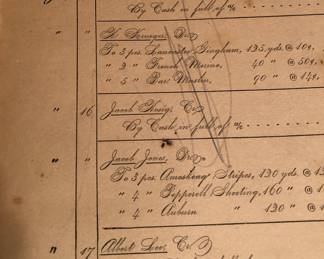 By Cash in full of a/c
" " Dr
To 3 pcs. Lancaster Gingham, 135 yds. @ 10¢,
" 2 " French Merino, 40 " @ 50¢,
" 5 " Bars Muslin, 90 " @ 14¢,
" 16 Jacob Königs Cr
By Cash in full of a/c
" " Jacob Jones, Dr
To 3 pcs. Amoskeag Stripes, 130 yds. @ 1
" 4 " Pepperell Sheeting, 160 " @ 1
" 4 " Auburn " 130 " @
" 17 Albert Lee, Cr